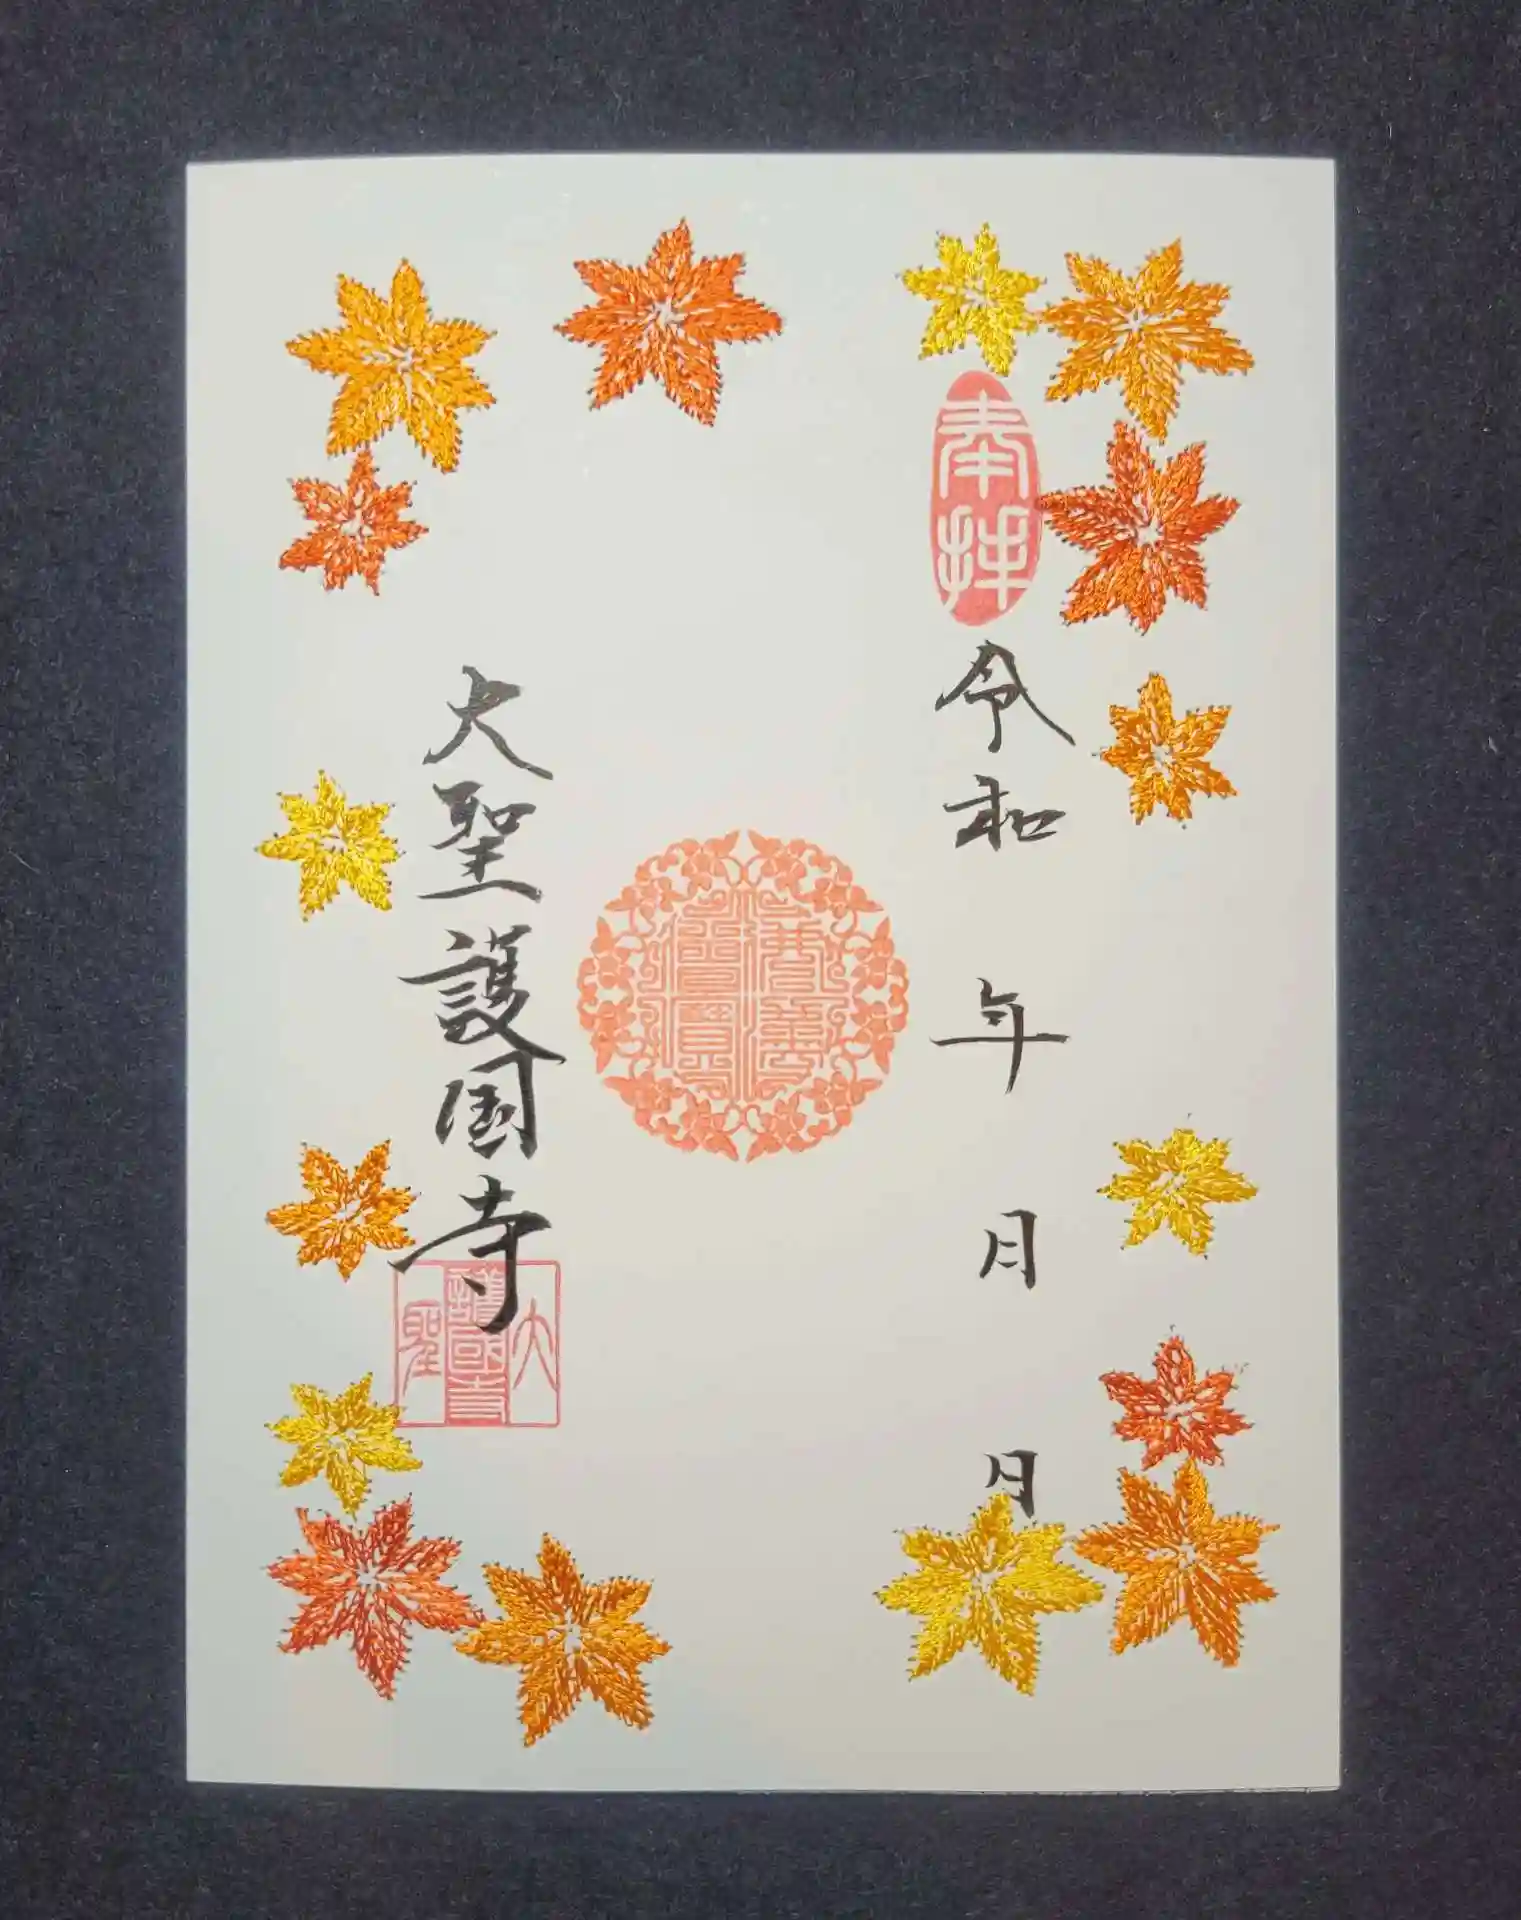 奉拝
令和 年 月 日
大聖護国寺
大
護國寺
聖